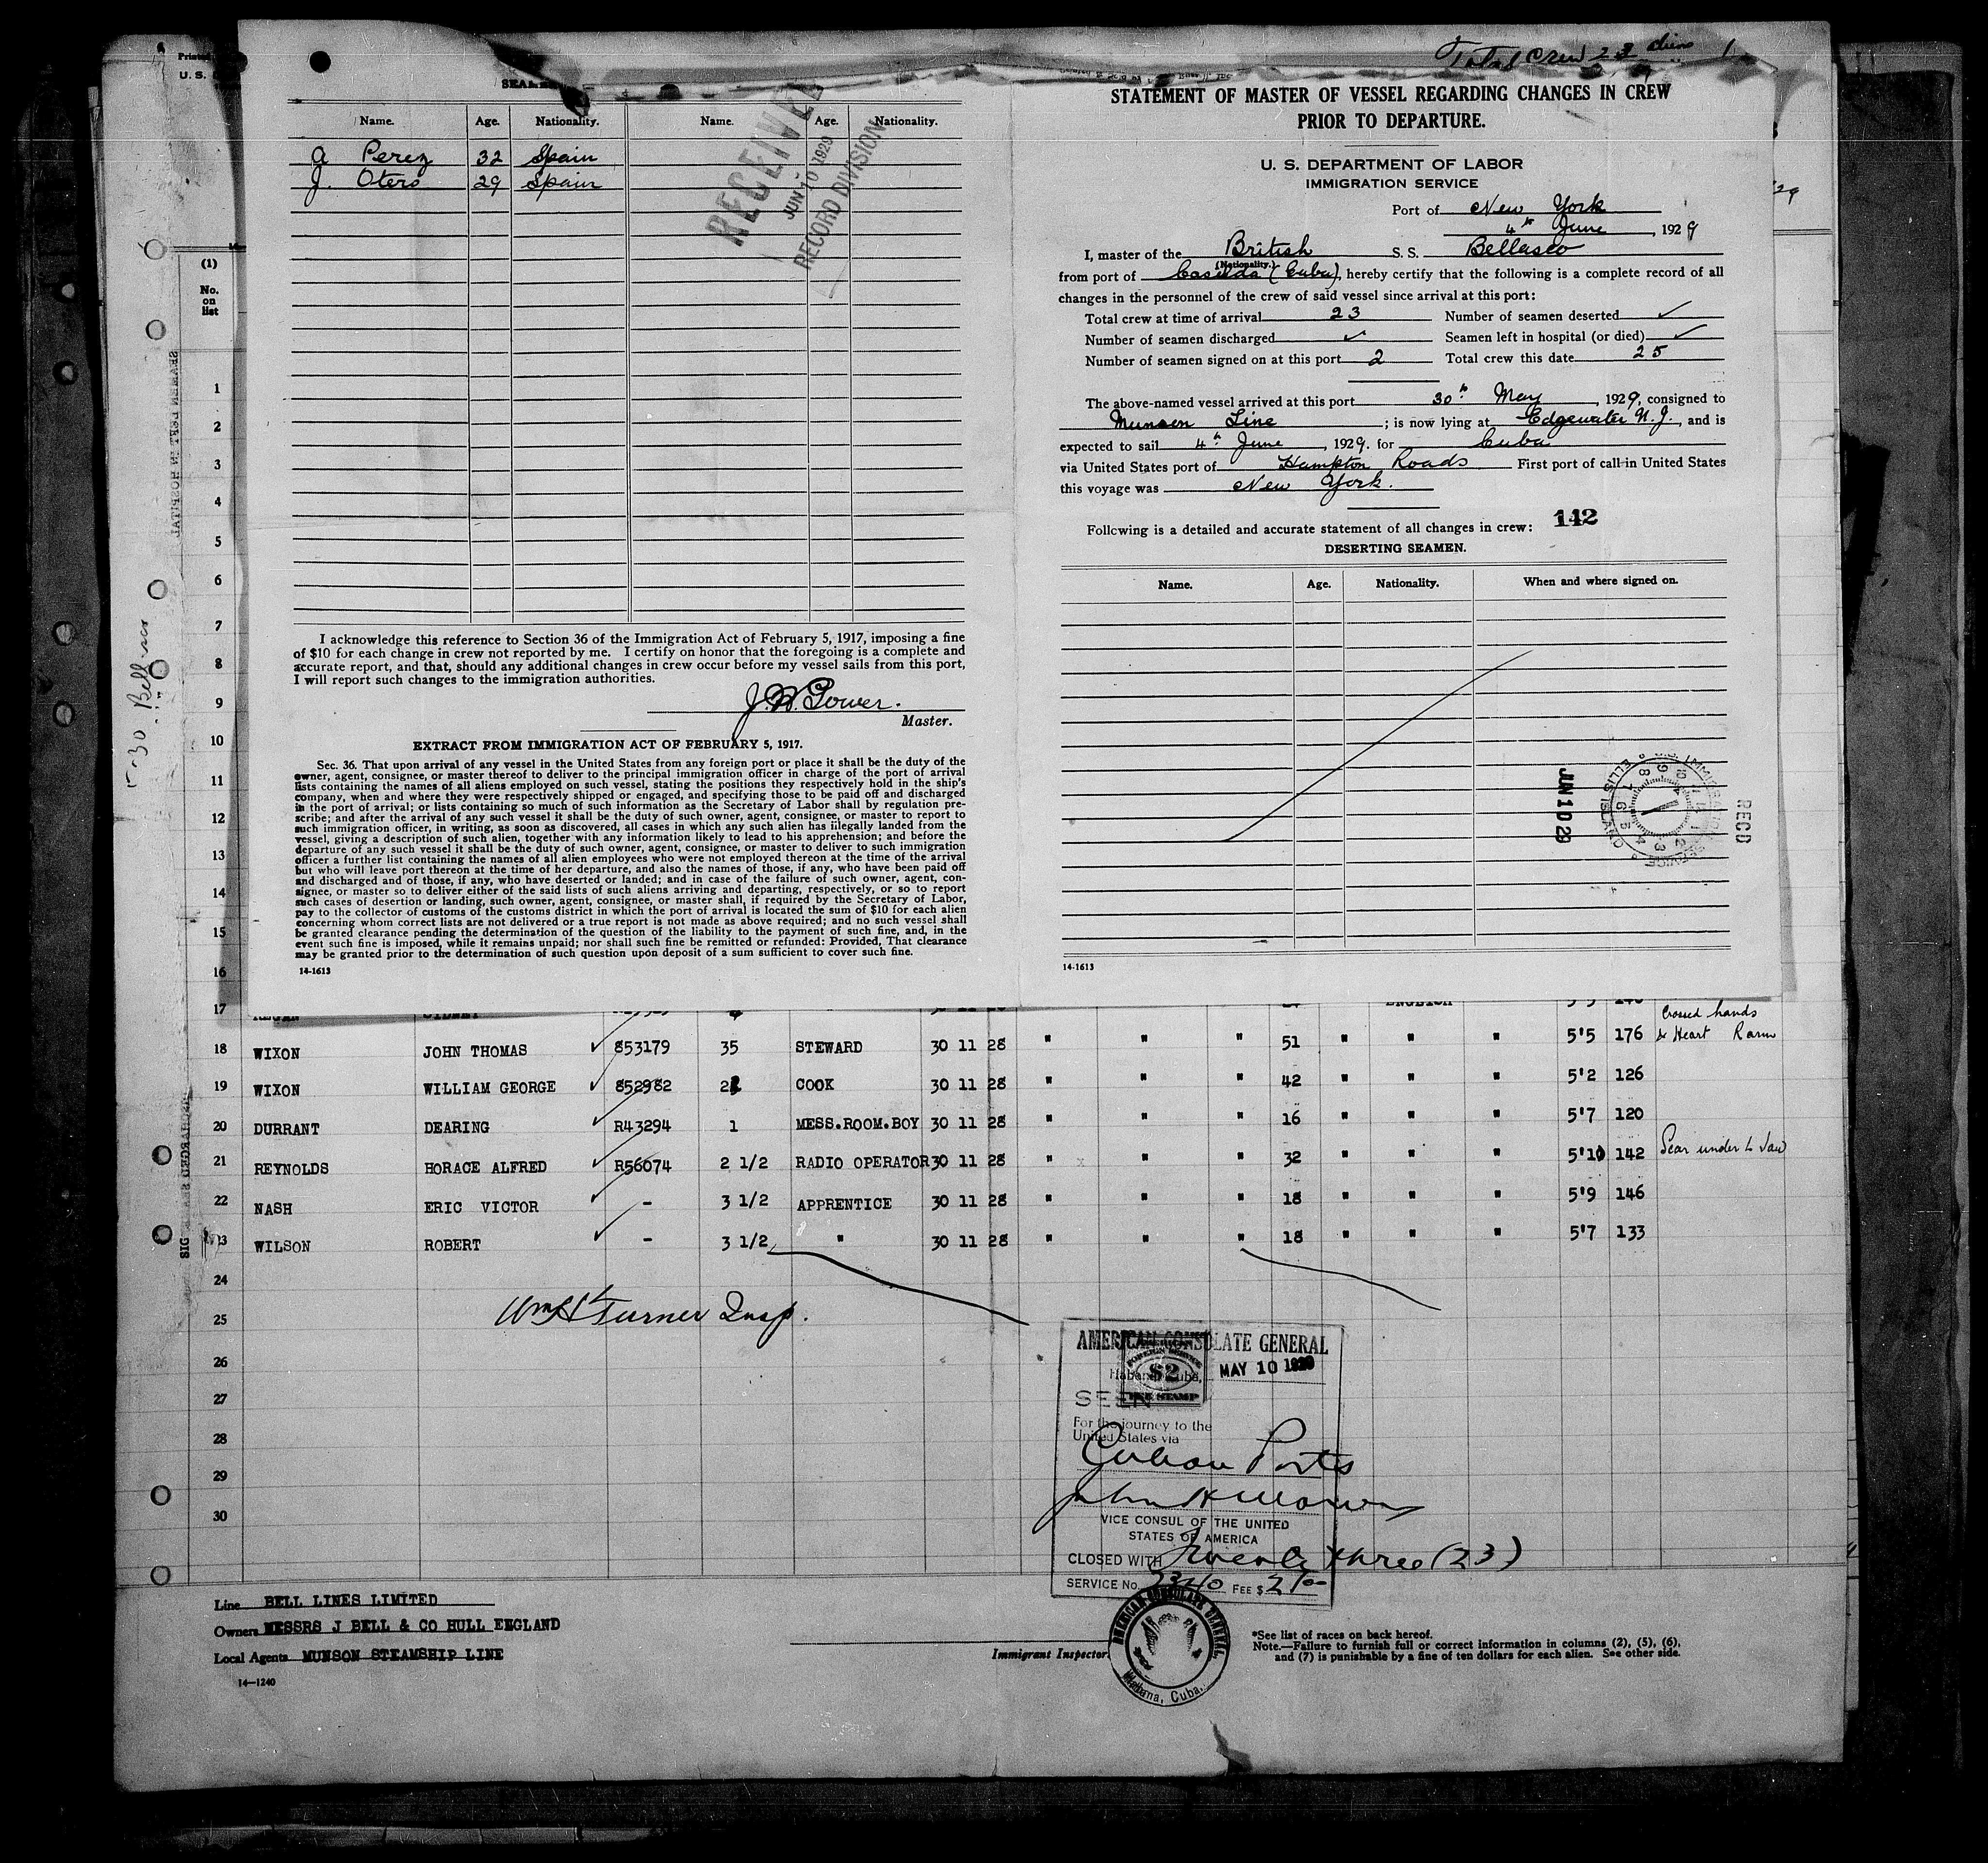 Total Crew 23
SEAMEN
Name. Age. Nationality. Name. Age. Nationality.
A Perez 32 Spain
J. Otero 29 Spain
RECEIVED
JUN 10 1929
RECORD DIVISION
I acknowledge this reference to Section 36 of the Immigration Act of February 5, 1917, imposing a fine
of $10 for each change in crew not reported by me. I certify on honor that the foregoing is a complete and
accurate report, and that, should any additional changes in crew occur before my vessel sails from this port,
I will report such changes to the immigration authorities.
J. W. Gower.
Master.
EXTRACT FROM IMMIGRATION ACT OF FEBRUARY 5, 1917.
Sec. 36. That upon arrival of any vessel in the United States from any foreign port or place it shall be the duty of the
owner, agent, consignee, or master thereof to deliver to the principal immigration officer in charge of the port of arrival
lists containing the names of all aliens employed on such vessel, stating the positions they respectively hold in the ship's
company, when and where they were respectively shipped or engaged, and specifying those to be paid off and discharged
in the port of arrival; or lists containing so much of such information as the Secretary of Labor shall by regulation pre-
scribe; and after the arrival of any such vessel it shall be the duty of such owner, agent, consignee, or master to report to
such immigration officer, in writing, as soon as discovered, all cases in which any such alien has illegally landed from the
vessel, giving a description of such alien, together with any information likely to lead to his apprehension; and before the
departure of any such vessel it shall be the duty of such owner, agent, consignee, or master to deliver to such immigration
officer a further list containing the names of all alien employees who were not employed thereon at the time of the arrival
but who will leave port thereon at the time of her departure, and also the names of those, if any, who have been paid off
and discharged and of those, if any, who have deserted or landed; and in case of the failure of such owner, agent, con-
signee, or master so to deliver either of the said lists of such aliens arriving and departing, respectively, or so to report
such cases of desertion or landing, such owner, agent, consignee, or master shall, if required by the Secretary of Labor,
pay to the collector of customs of the customs district in which the port of arrival is located the sum of $10 for each alien
concerning whom correct lists are not delivered or a true report is not made as above required; and no such vessel shall
be granted clearance pending the determination of the question of the liability to the payment of such fine, and, in the
event such fine is imposed, while it remains unpaid; nor shall such fine be remitted or refunded: Provided, That clearance
may be granted prior to the determination of such question upon deposit of a sum sufficient to cover such fine.
14-1613
STATEMENT OF MASTER OF VESSEL REGARDING CHANGES IN CREW
PRIOR TO DEPARTURE.
U. S. DEPARTMENT OF LABOR
IMMIGRATION SERVICE
Port of New York
4th June, 1929
I, master of the British S. S. Bellasco
(Nationality.)
from port of Casilda (Cuba), hereby certify that the following is a complete record of all
changes in the personnel of the crew of said vessel since arrival at this port:
Total crew at time of arrival 23 Number of seamen deserted ✓
Number of seamen discharged ✓ Seamen left in hospital (or died) ✓
Number of seamen signed on at this port 2 Total crew this date 25
The above-named vessel arrived at this port 30th May, 1929, consigned to
Munson Line; is now lying at Edgewater N.J., and is
expected to sail 4th June, 1929. for Cuba
via United States port of Hampton Roads First port of call in United States
this voyage was New York.
Following is a detailed and accurate statement of all changes in crew: 142
DESERTING SEAMEN.
Name. Age. Nationality. When and where signed on.
JUN 10 29
RECD
14-1613
Printed
U. S.
(1)
No.
on
list
5-30
1
2
3
4
5
6
7
8
9
10
11
12
13
14
15
16
17 REGAN SIDNEY ENGLISH
18 WIXON JOHN THOMAS ✓ 853179 35 STEWARD 30 11 28 " " " 51 " " " 5'5 176 Crossed hands & Heart R arm
19 WIXON WILLIAM GEORGE ✓ 852982 22 COOK 30 11 28 " " " 42 " " " 5'2 126
20 DURRANT DEARING ✓ R43294 1 MESS.ROOM.BOY 30 11 28 " " " 16 " " " 5'7 120
21 REYNOLDS HORACE ALFRED ✓ R56074 2 1/2 RADIO OPERATOR 30 11 28 " " " 32 " " " 5'10 142 Scar under L Jaw
22 NASH ERIC VICTOR ✓ - 3 1/2 APPRENTICE 30 11 28 " " " 18 " " " 5'9 146
23 WILSON ROBERT ✓ - 3 1/2 " 30 11 28 " " " 18 " " " 5'7 133
24
25 Wm H Turner Insp.
26
27
28
29
30
AMERICAN CONSULATE GENERAL
Habana, Cuba, MAY 10 1929
FOREIGN SERVICE
$2
FEE STAMP
SEEN
For the journey to the
United States via
Cuban Ports
VICE CONSUL OF THE UNITED
STATES OF AMERICA
CLOSED WITH Twenty three (23)
SERVICE No. FEE $
AMERICAN CONSULATE GENERAL
Habana, Cuba.
Line BELL LINES LIMITED
Owners MESSRS J BELL & CO HULL ENGLAND
Local Agents MUNSON STEAMSHIP LINE
14—1240
Immigrant Inspector.
*See list of races on back hereof.
Note.—Failure to furnish full or correct information in columns (2), (5), (6),
and (7) is punishable by a fine of ten dollars for each alien. See other side.